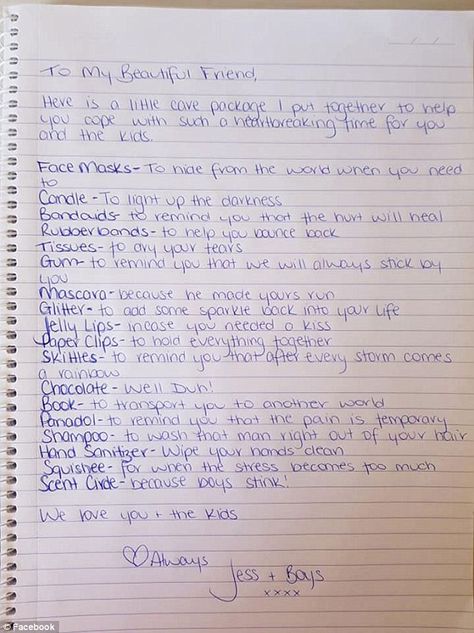 To My Beautiful Friend,
Here is a little care package I put together to help
you cope with such a heartbreaking time for you
and the kids.
Face Masks- To hide from the world when you need
to
Candle - To light up the darkness
Bandaids- to remind you that the hurt will heal
Rubberbands - to help you bounce back
Tissues- to dry your tears
Gum- to remind you that we will always stick by
you
Mascara- because he made yours run
Glitter- to add some sparkle back into your life
Jelly Lips- incase you needed a kiss
Paper Clips- to hold everything together
Skittles - to remind you that after every storm comes
a rainbow
Chocolate - Well Duh!
Book- to transport you to another world
Panadol- to remind you that the pain is temporary
Shampoo- to wash that man right out of your hair
Hand Sanitizer- Wipe your hands clean
Squishee- for when the stress becomes too much
Scent Circle- because boys stink!
We love you + the kids
♡ Always
Jess + Boys
xxxx
© Facebook